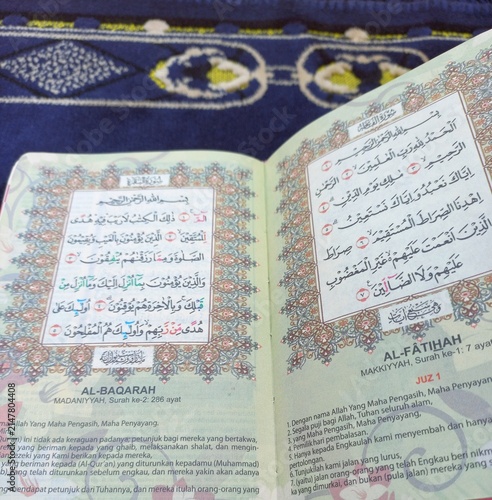 سُورَةُ الْفَاتِحَةِ
بِسْمِ اللّٰهِ الرَّحْمٰنِ الرَّحِيْمِ ١
اَلْحَمْدُ لِلّٰهِ رَبِّ الْعٰلَمِيْنَ ٢ الرَّحْمٰنِ
الرَّحِيْمِ ٣ مٰلِكِ يَوْمِ الدِّيْنِ ٤
اِيَّاكَ نَعْبُدُ وَاِيَّاكَ نَسْتَعِيْنُ ٥
اِهْدِنَا الصِّرَاطَ الْمُسْتَقِيْمَ ٦ صِرَاطَ
الَّذِيْنَ اَنْعَمْتَ عَلَيْهِمْ غَيْرِ الْمَغْضُوْبِ
عَلَيْهِمْ وَلَا الضَّاۤلِّيْنَ ٧
AL-FĀTIḤAH
MAKKIYYAH, Surah ke-1: 7 ayat
JUZ 1
1. Dengan nama Allah Yang Maha Pengasih, Maha Penyayang.
2. Segala puji bagi Allah, Tuhan seluruh alam,
3. Yang Maha Pengasih, Maha Penyayang,
4. Pemilik hari pembalasan.
5. Hanya kepada Engkaulah kami menyembah dan hanya
pertolongan.
6. Tunjukilah kami jalan yang lurus,
7. (yaitu) jalan orang-orang yang telah Engkau beri nikmat
yang dimurkai, dan bukan (pula jalan) mereka yang
سُورَةُ الْبَقَرَةِ
بِسْمِ اللّٰهِ الرَّحْمٰنِ الرَّحِيْمِ
الۤمّۤ ١ ذٰلِكَ الْكِتٰبُ لَا رَيْبَ فِيْهِ هُدًى
لِّلْمُتَّقِيْنَ ٢ الَّذِيْنَ يُؤْمِنُوْنَ بِالْغَيْبِ وَيُقِيْمُوْنَ
الصَّلٰوةَ وَمِمَّا رَزَقْنٰهُمْ يُنْفِقُوْنَ ٣
وَالَّذِيْنَ يُؤْمِنُوْنَ بِمَآ اُنْزِلَ اِلَيْكَ وَمَآ اُنْزِلَ مِنْ
قَبْلِكَ وَبِالْاٰخِرَةِ هُمْ يُوْقِنُوْنَ ٤ اُولٰۤىِٕكَ عَلٰى
هُدًى مِّنْ رَّبِّهِمْ وَاُولٰۤىِٕكَ هُمُ الْمُفْلِحُوْنَ ٥
AL-BAQARAH
MADANIYYAH, Surah ke-2: 286 ayat
Allah Yang Maha Pengasih, Maha Penyayang.
ini tidak ada keraguan padanya; petunjuk bagi mereka yang bertakwa,
yang beriman kepada yang ghaib, melaksanakan shalat, dan mengin-
rezeki yang Kami berikan kepada mereka,
beriman kepada (Al-Qur'an) yang diturunkan kepadamu (Muhammad)
yang telah diturunkan sebelum engkau, dan mereka yakin akan adanya
mendapat petunjuk dari Tuhannya, dan mereka itulah orang-orang yang
Adobe Stock | #2147804408